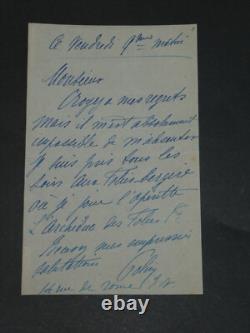 Ce Vendredi 9ème matin
Monsieur
Croyez à mes regrets
mais il m'est absolument
impossible de m'absenter
je suis pris tous les
soirs aux Folies-Bergère
où je joue l'opérette
L'archiduc des Folies
Recevez mes empressées
salutations
rue de rome